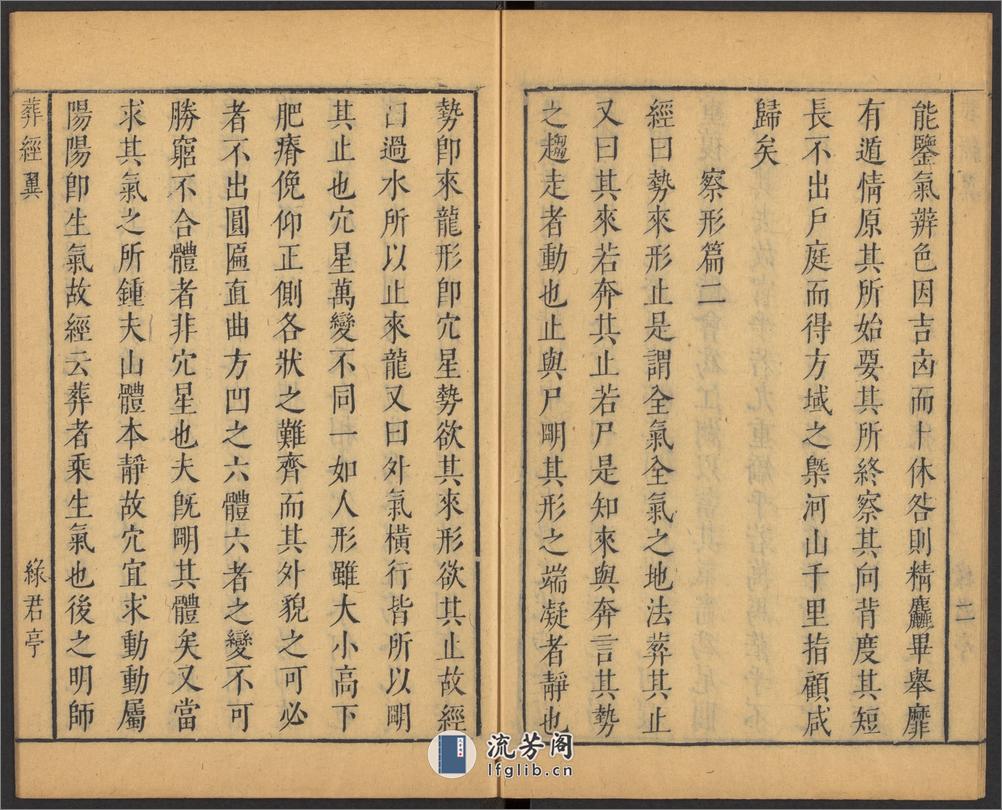 能鑒氣辨色因吉凶而卞休咎則精麤畢舉靡
有遁情原其所始要其所終察其向背度其短
長不出戶庭而得方域之槩河山千里指顧咸
歸矣
察形篇二
經曰勢來形止是謂全氣全氣之地法葬其止
又曰其來若奔其止若尸是知來與奔言其勢
之趨走者動也止與尸明其形之端凝者靜也
勢卽來龍形卽穴星勢欲其來形欲其止故經
曰過水所以止來龍又曰外氣橫行皆所以明
其止也穴星萬變不同一如人形雖大小高下
肥瘠俛仰正側各狀之難齊而其外貌之可必
者不出圓匾直曲方凹之六體六者之變不可
勝窮不合體者非穴星也夫既明其體矣又當
求其氣之所鍾夫山體本靜故穴宜求動動屬
陽陽卽生氣故經云葬者乘生氣也後之明師
葬經翼
綠君亭
流芳阁
lfglib.cn